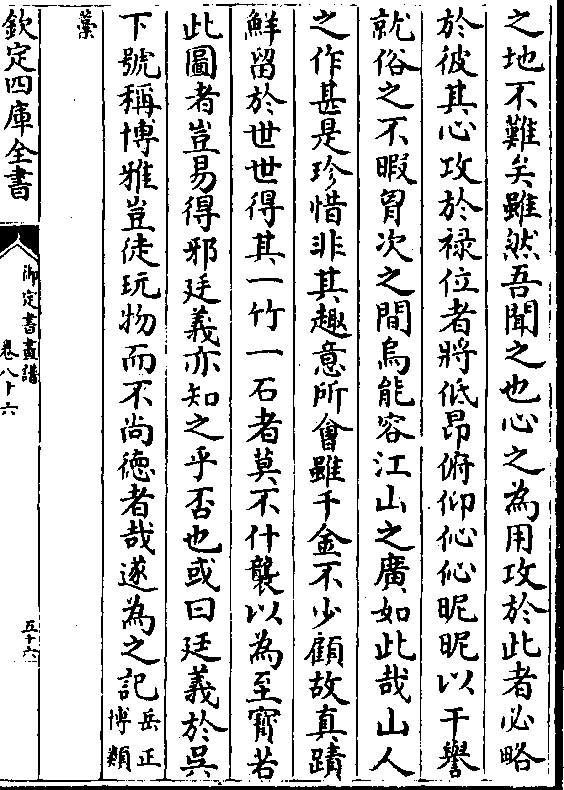 之地不難矣雖然吾聞之也心之為用攻於此者必略
於彼其心攻於祿位者將低昂俯仰伈伈昵昵以干譽
就俗之不暇胷次之間烏能容江山之廣如此哉山人
之作甚是珍惜非其趣意所會雖千金不少顧故真蹟
鮮留於世世得其一竹一石者莫不什襲以為至寳若
此圖者豈易得邪廷義亦知之乎否也或曰廷義於吳
下號稱博雅豈徒玩物而不尚徳者哉遂為之記岳正博類
藁
欽定四庫全書
御定書畫譜
卷八十六
五十六